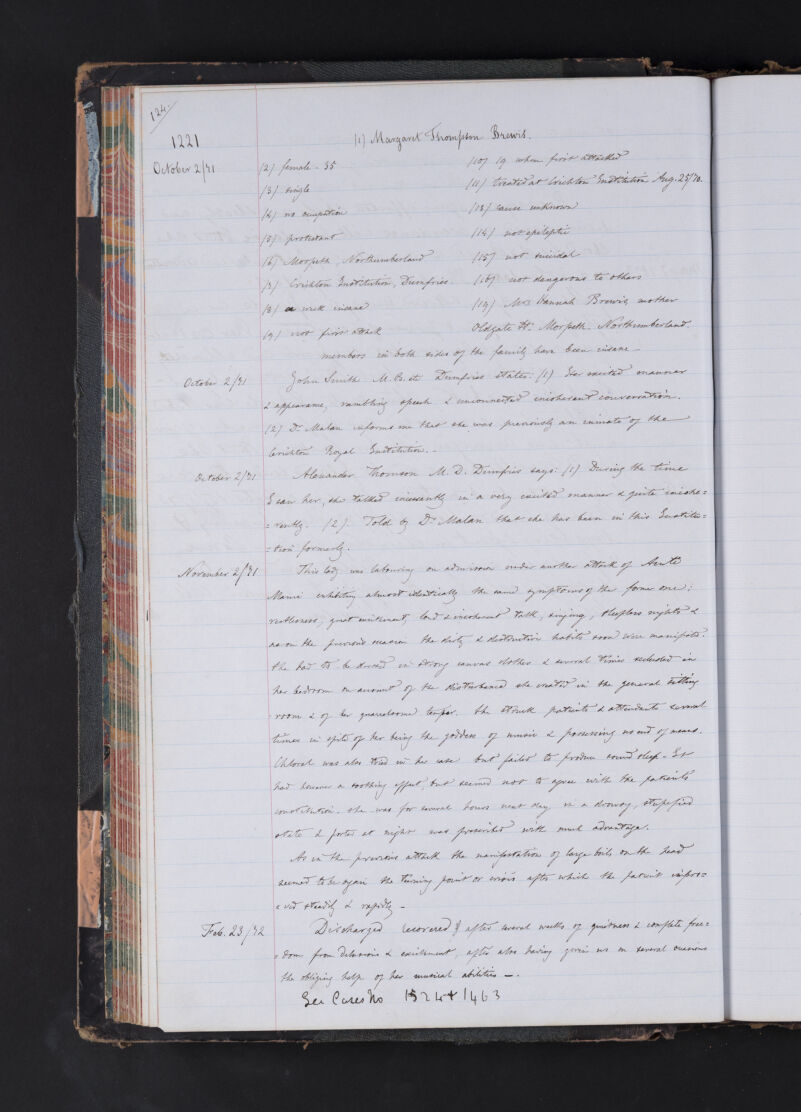 124.
1221
(1) Margaret Thompson Brewis.
October 2/71
(2) female - 35
(10) 19 when first attacked
(3) single
(11) treated at Crichton Institution Aug. 25/70.
(4) no occupation
(13) cause unknown
(5) protestant
(14) not epileptic
(6) Morpeth, Northumberland
(15) not suicidal
(7) Crichton Institution, Dumfries.
(16) not dangerous to others
(8) a week insane
(19) Mrs Hannah Brewis, mother
(9) not first attack
Oldgate St. Morpeth. Northumberland.
members in both sides of the family have been insane -
October 2/71
John Smith M.B. at Dumfries states: (1) Her excited manner
& appearance, rambling speech & unconnected incoherent conversation.
(2) Dr Malan informs me that she was previously an inmate of the
Crichton Royal Institution. -
October 2/71
Alexander Thomson M.D. Dumfries says: (1) During the time
I saw her, she talked incessantly in a very excited manner & quite incohe=
=rently. (2) Told by Dr Malan that she has been in this Institu=
=tion formerly.
November 2/71
This lady was labouring on admission under another attack of Acute
Mania exhibiting almost identically the same symptoms of the former one:
restlessness, great excitement, loud & incoherent talk, singing, sleepless nights &
as on the previous occasion the dirty & destructive habits soon were manifested.
She had to be dressed in strong canvas clothes & several times secluded in
her bedroom on account of the disturbance she created in the general sitting
room & of her quarrelsome temper. She struck patients & attendants several
times in spite of her being the goddess of music & possessing no end of means.
Chloral was also tried in her case but failed to produce sound sleep. It
had however a soothing effect, but seemed not to agree with the patient's
constitution. She was for several hours next day in a drowsy, stupefied
state & porter at night was prescribed with much advantage.
As in the previous attack the manifestation of large boils on the head
seemed to be again the turning point or crisis after which the patient impro=
=ved steadily & rapidly -
Feb. 23/72
Discharged recovered after several weeks of quietness & complete free=
=dom from delusions & excitement, after also having given us on several occasions
the obliging help of her musical abilities -.
See Cases No 1324 + 1463